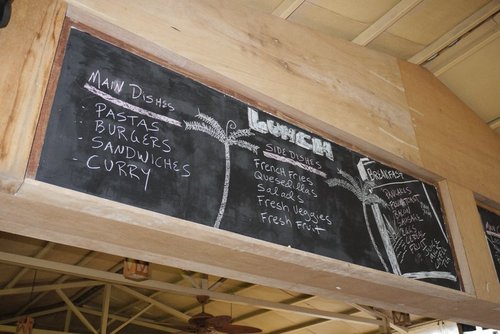 Lunch
Main Dishes
- Pastas
- Burgers
- Sandwiches
- Curry
Side Dishes
French Fries
Quesedillas
Salads
Fresh Veggies
Fresh Fruit
Breakfast
Pancakes
Fruit